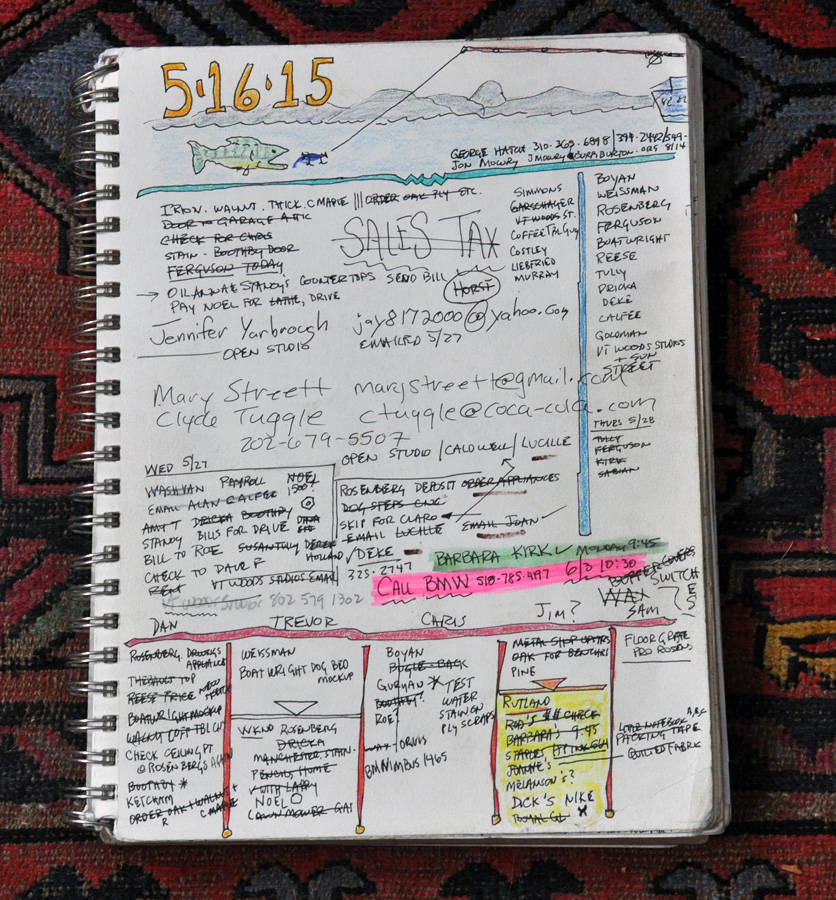 5·16·15
GEORGE HATCH 310-363-6898 / 399-2442/549-8114
JON MOWRY JMOWRY@CURABURTON.ORG
IPION. WALNUT. THICK. C MAPLE ||| ORDER OAK PLY ETC.
DOOR TO GARAGE ATTIC
CHECK FOR CHRIS
STAIN BOOTHBY DOOR
FERGUSON TODAY
SALES TAX
→ OIL ANNA & STANDY'S COUNTERTOPS SEND BILL
PAY NOEL FOR LATHE, DRIVE
HORST
SIMMONS
GARSCHAGER
VT WOODS ST.
COFFEE TBL GUY
COSTLEY
LIEBFRIED
MURRAY
BOYAN
WEISSMAN
ROSENBERG
FERGUSON
BOATWRIGHT
REESE
TULLY
DRICKA
DEKE
CALFEE
GOLDMAN
VT WOODS STUDIOS
+ SUN
STREET
THURS 5/28
TULLY
FERGUSON
KIRK
SABIAN
Jennifer Yarbrough jay8172000@yahoo.com
OPEN STUDIO EMAILED 5/27
Mary Streett marystreett@gmail.com
Clyde Tuggle ctuggle@coca-cola.com
202-679-5507
OPEN STUDIO / CALDWELL / LUCILLE
WED 5/27
WASHVAN PAYROLL NOEL 1500?
EMAIL ALAN CALFEE
AMT T DRICKA BOOTHBY
STANDY BILLS FOR DRIVE
BILL TO ROE SUSAN TULLY DEREK HOLLAND
CHECK TO DAVE R
RENT VT WOODS STUDIOS EMAIL
VT WOODS STUDIOS 802 579 1302
ROSENBERG DEPOSIT ORDER APPLIANCES
DOG STEPS CNC
SKIP FOR CLARO
EMAIL LUCILLE EMAIL JOAN ✓
✓ DEKE
325-2747
BARBARA KIRK ✓ MONDAY 9:45
CALL BMW 518-785-4197 6/3 10:30
BUFFER COVERS
WAX SWITCHES
SAM
DAN
ROSENBERG DRAWINGS
APPLIANCES
THIBAULT TOP
REESE PRICE NEW SKETCH
BOATWRIGHT MOCKUP
WALNUT COFF TBL CUT
CHECK CEILING PT
@ ROSENBERGS AGAIN
BOOTHBY *
KETCHUM
ORDER OAK + WALNUT + C MAPLE
TREVOR
WEISSMAN
BOATWRIGHT DOG BED
MOCKUP
WKND ROSENBERG
DRICKA
MANCHESTER, STAIN
PENCILS HOME
✓ WITH LARRY
NOEL
LAWN MOWER GAS
CHRIS
BOYAN
BUGLE BACK
GURYAN *
BOOTHBY?
ROE?
TEST
WATER
STAIN ON
PLY SCRAPS
ORVIS
BMNIMBUS 1465
JIM?
METAL SHOP
OAK FOR BENCHES
PINE
RUTLAND
ROD'S $$ CHECK
BARBARA'S 9:45
STAPLES
JOANNE'S
MELANSON'S?
DICK'S NIKE
FLOOR GRATE
PRO ROSENS
NOTEBOOK A,B,C
PACKING TAPE
QUILTED FABRIC